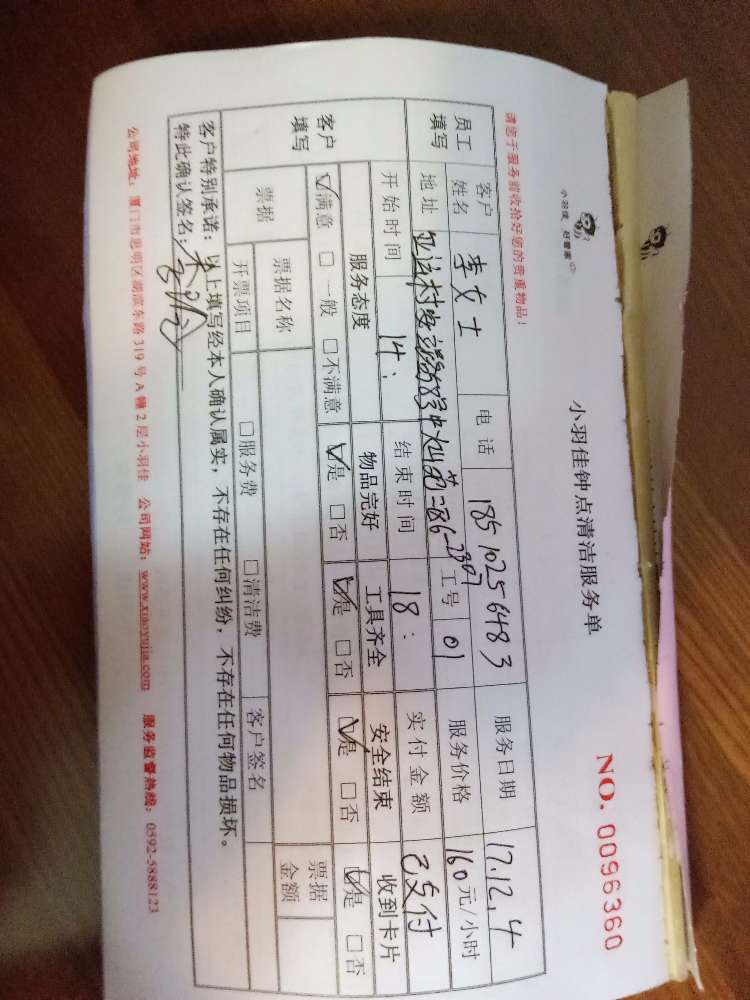 小羽佳 好管家
小羽佳钟点清洁服务单
NO. 0096360
请您于服务前收拾好您的贵重物品!
员工填写 客户姓名 李女士 电话 18510256483 服务日期 17.12.4
地址 亚运村安 号 中 二区6-2307 工号 01 服务价格 160元/小时
开始时间 14: 结束时间 18: 实付金额 已支付
客户填写 服务态度 物品完好 工具齐全 安全结束 收到卡片
☑满意 □一般 □不满意 ☑是 □否 ☑是 □否 ☑是 □否 ☑是 □否
票据 票据名称 票据金额
开票项目 □服务费 □清洁费 客户签名
客户特别承诺:以上填写经本人确认属实,不存在任何纠纷,不存在任何物品损坏。
特此确认签名:
公司地址:厦门市思明区湖滨东路319号A幢2层小羽佳 公司网站:www.xiaoyujia.com 服务监督热线:0592-5888123